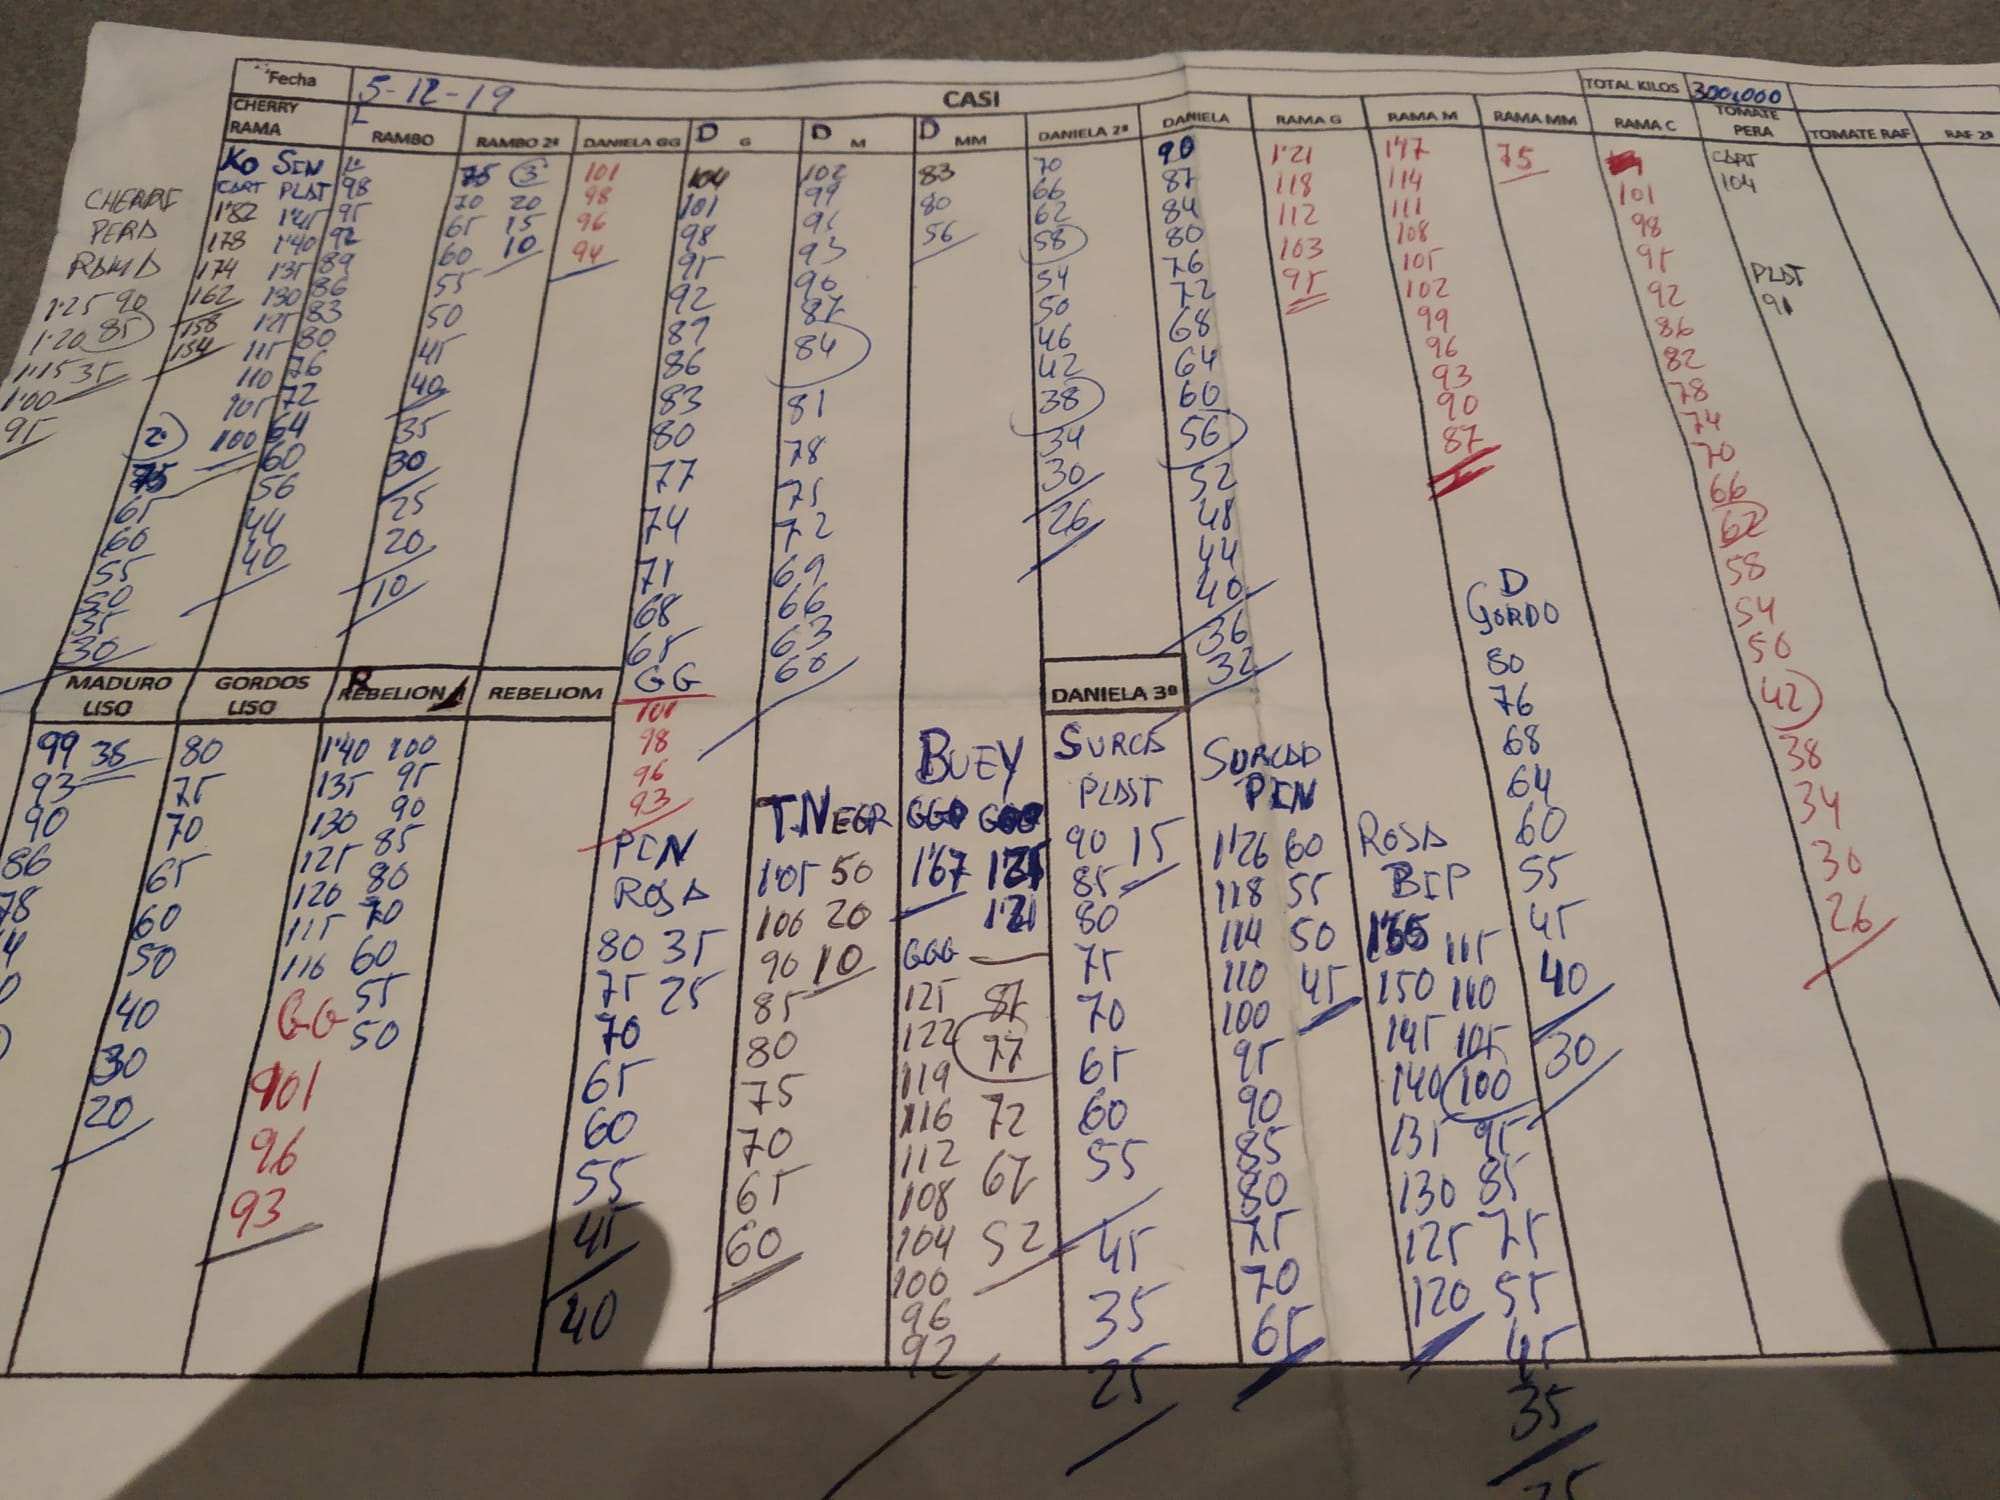 Fecha 5-12-19 CASI TOTAL KILOS 300.000
CHERRY RAMA
L RAMBO
RAMBO 2ª
DANIELA GG
D G
D M
D MM
DANIELA 2ª
DANIELA
RAMA G
RAMA M
RAMA MM
RAMA C
TOMATE PERA
TOMATE RAF
RAF 2ª
CHERRY
PERA
RAMA
1'25 90
1'20 85
1'15 35
1'00
95
KO SIN
CART PLAT
1'82 1'45
178 1'40
174 135
162 130
158 125
154 115
110
105
100
75
65
60
55
50
35
30
98
95
92
89
86
83
80
76
72
64
60
56
44
40
75 3
70 20
65 15
60 10
55
50
45
40
35
30
25
20
10
101
98
96
94
104
101
98
95
92
89
86
83
80
77
74
71
68
65
GG
101
98
96
93
102
99
96
93
90
87
84
81
78
75
72
69
66
63
60
83
80
56
70
66
62
58
54
50
46
42
38
34
30
26
90
87
84
80
76
72
68
64
60
56
52
48
44
40
36
32
1'21
118
112
103
95
1'17
114
111
108
105
102
99
96
93
90
87
75
101
98
95
92
86
82
78
74
70
66
62
58
54
50
42
38
34
30
26
CART
104
PLAT
91
MADURO LISO
99 38
93
90
86
78
GORDOS LISO
80
75
70
65
60
50
40
30
20
REBELION
1'40 100
135 95
130 90
125 85
120 80
115 70
116 60
GG 55
50
101
96
93
REBELIOM
PIN
ROSA
80 35
75 25
70
65
60
55
45
40
T.NEGR
105 50
100 20
90 10
85
80
75
70
65
60
BUEY
GGO GGG
1'67 125
1'21
GGG
125 87
122 77
119
116 72
112 67
108
104 52
100
96
92
DANIELA 3ª
SURCA
PLAST
90 15
85
80
75
70
65
60
55
45
35
25
SURCAO
PIN
1'26 60
118 55
114 50
110 45
100
95
90
85
80
75
70
65
ROSA
BIP
155 115
150 110
145 105
140 100
135 95
130 85
125 75
120 55
45
35
25
D
GORDO
80
76
68
64
60
55
45
40
30